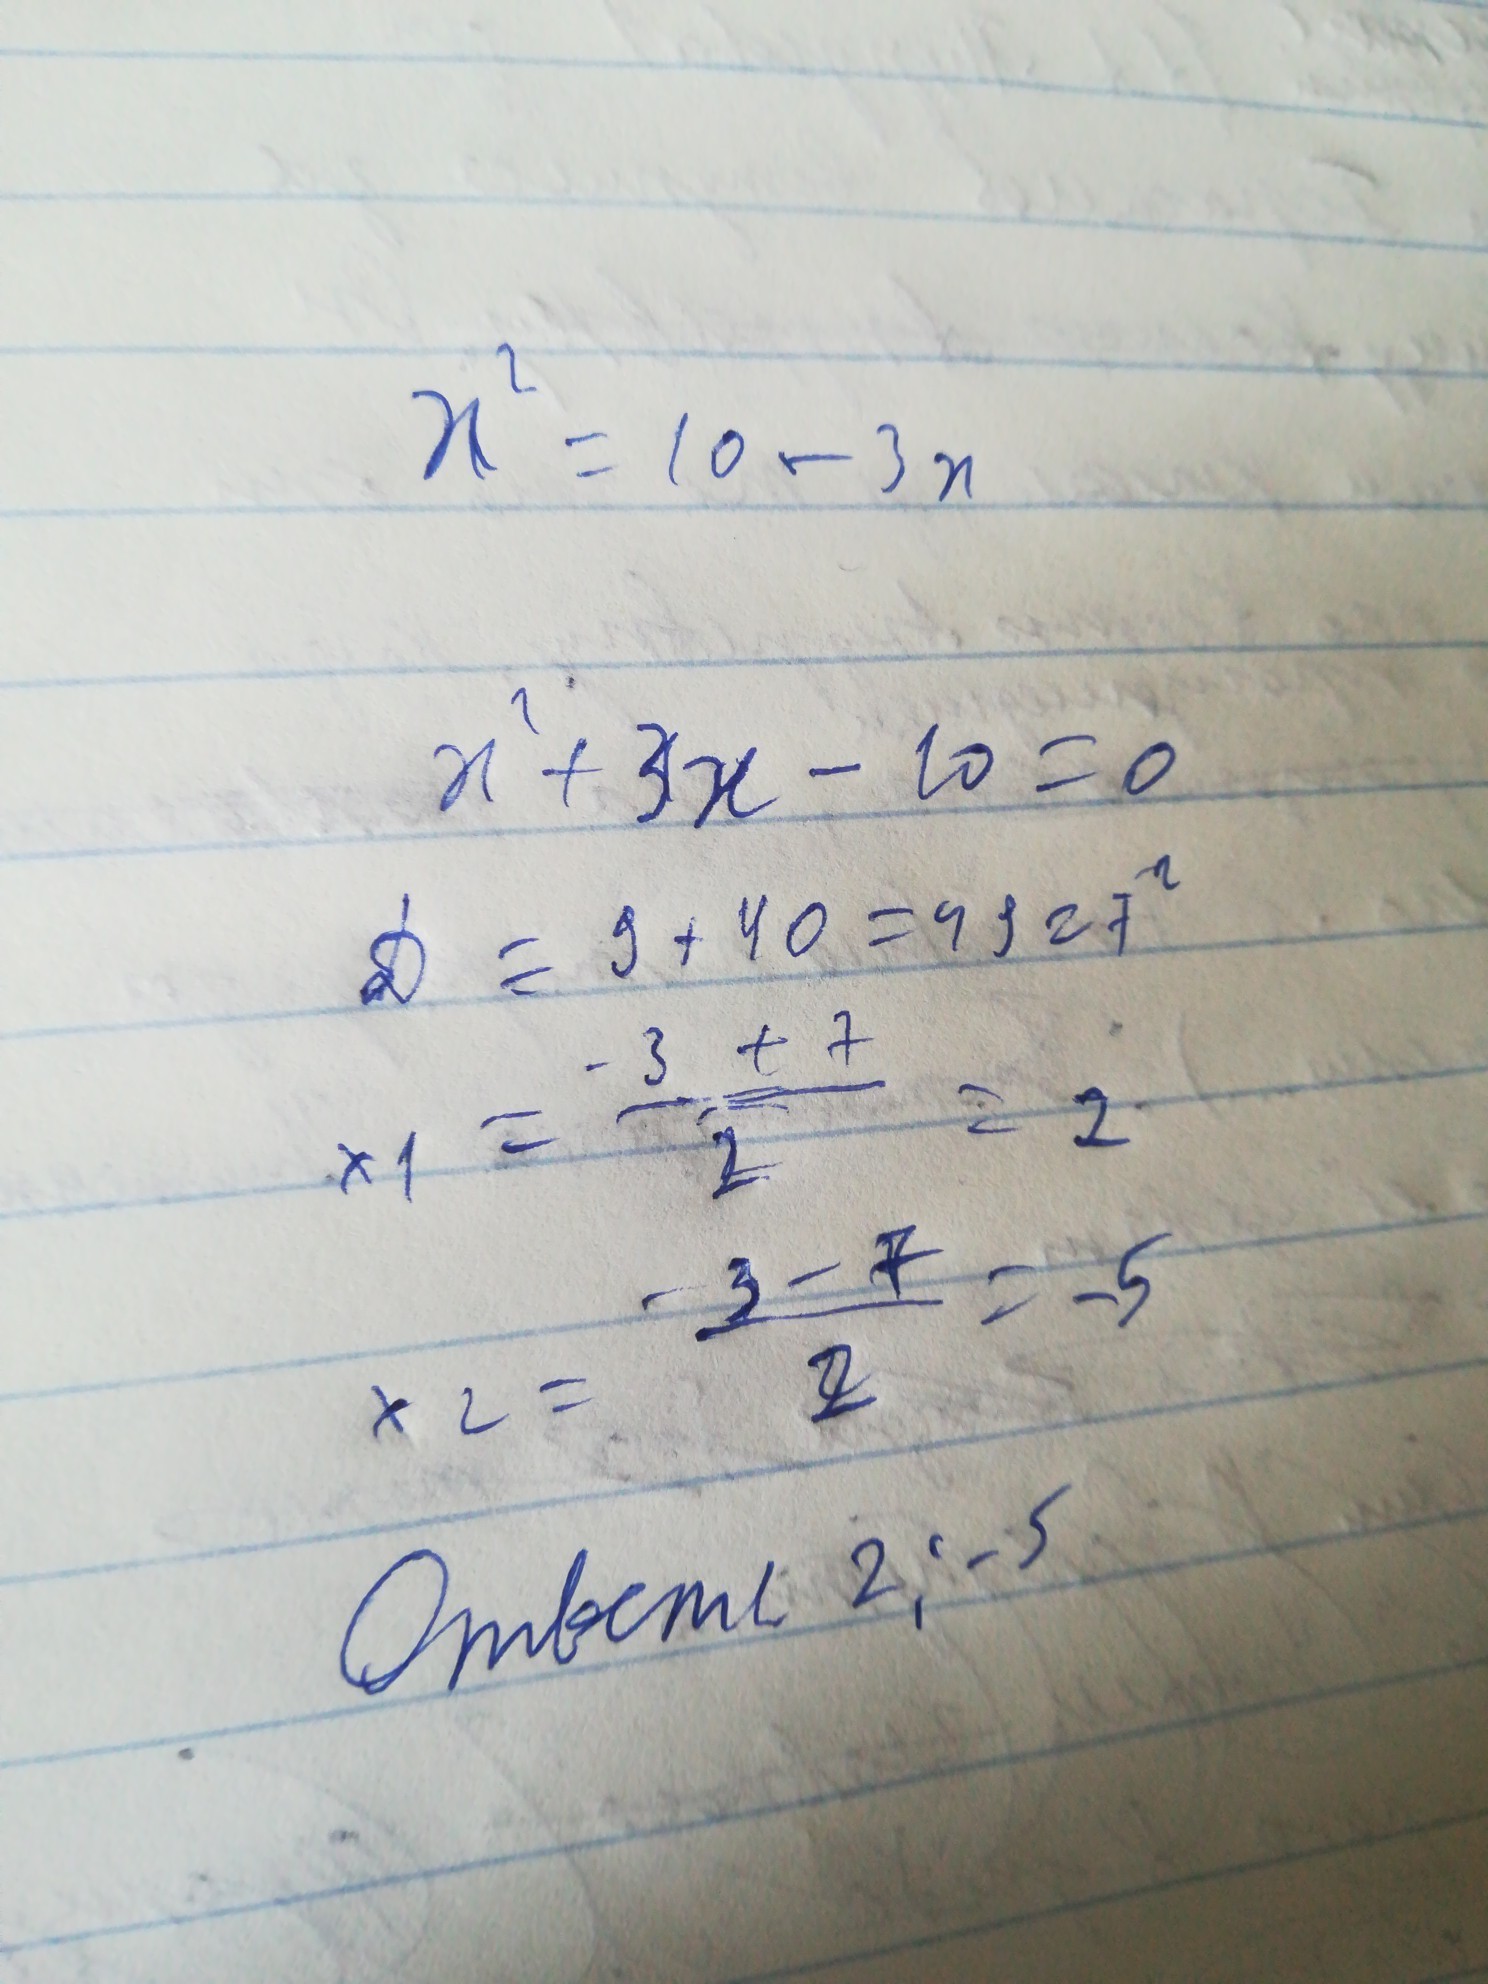 x² = 10 - 3x
x² + 3x - 10 = 0
D = 9 + 40 = 49 = 7²
x1 = (-3 + 7)/2 = 2
x2 = (-3 - 7)/2 = -5
Ответ 2; -5